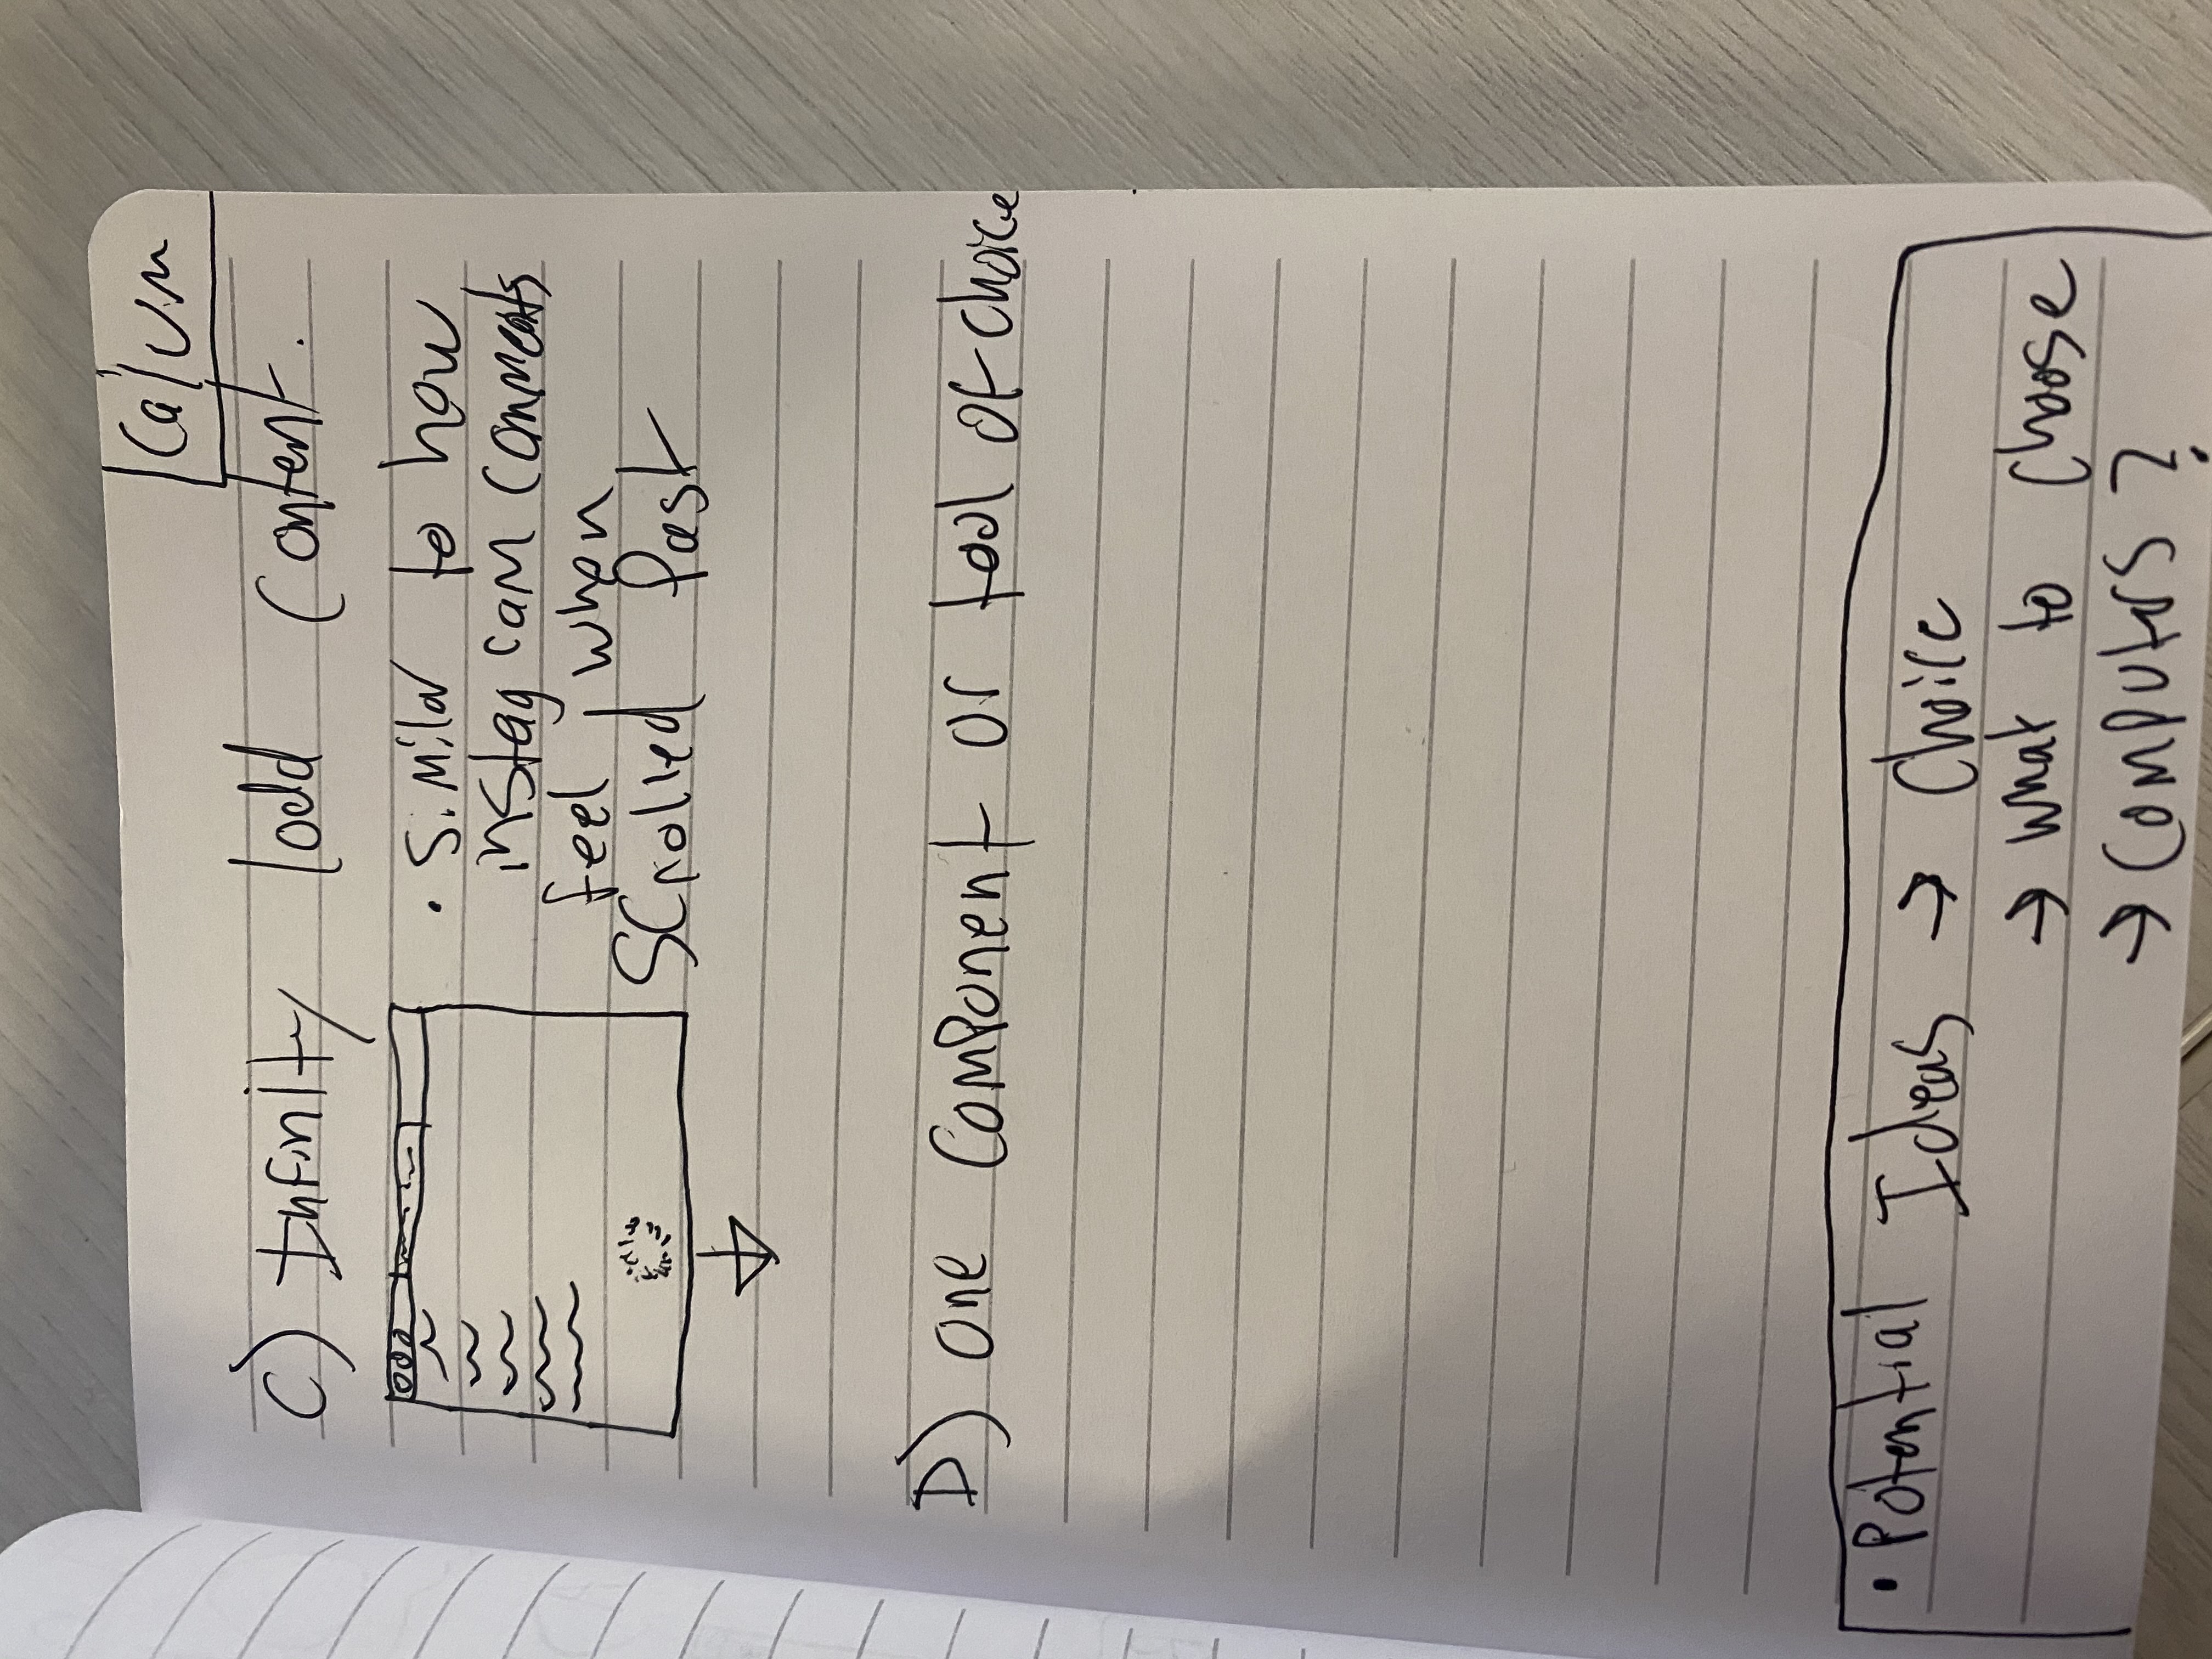 Calum
C) Infinity load content.
• Similar to how
instagram comments
feel when
scrolled past
D) one component or tool of choice
• Potential Ideas → Choice
→ what to choose
→ computers?